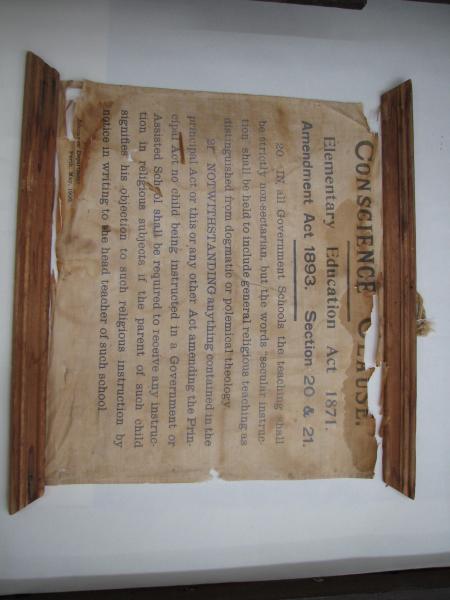 CONSCIENCE CLAUSE.
Elementary Education Act 1871.
Amendment Act 1893. Section 20 & 21.
20 IN all Government Schools the teaching shall
be strictly non-sectarian, but the words "secular instruc-
tion shall be held to include general religious teaching as
distinguished from dogmatic or polemical theology
21 NOTWITHSTANDING anything contained in the
principal Act or this or any other Act amending the Prin-
cipal Act no child being instructed in a Government or
Assisted School shall be required to receive any instruc-
tion in religious subjects if the parent of such child
signifies his objection to such religious instruction by
notice in writing to the head teacher of such school
Education Dept.
Perth, May,